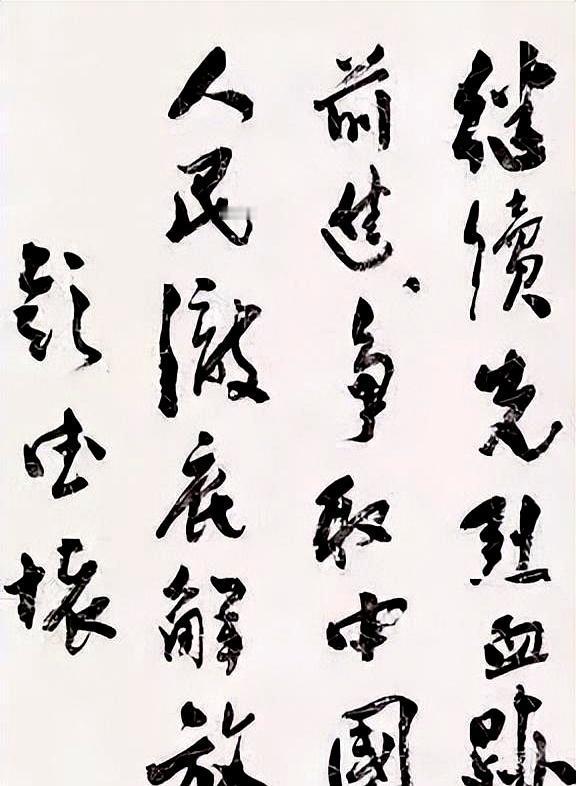 繼續先烈血跡
前進、爭取中國
人民澈底解放
彭德懷